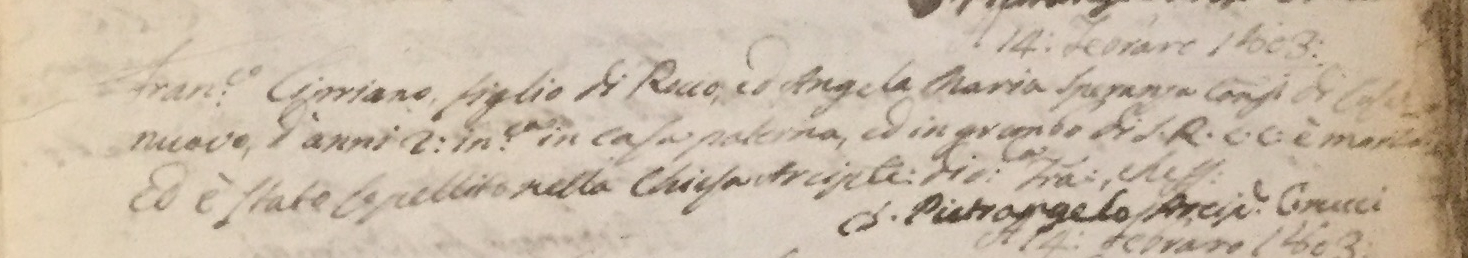 14: Febraro 1803:
Fran.co Cipriano, figlio di Rocco, ed Angela Maria Speranza Conj: di Casal
nuovo, d'anni 2: in c.a in casa paterna, ed in grembo di S. R. C. è morto
Ed è stato sepellito nella Chiesa Arciple: di d.ta Trà:,
D. Pietrangelo Arcip.e Crucci
A 14: Febraro 1803: